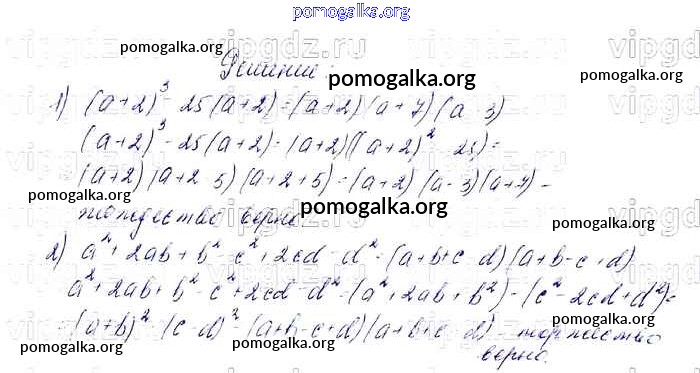 pomogalka.org
vipgdz.ru vipgdz.ru vipgdz.ru
pomogalka.org pomogalka.org
Решение:
pomogalka.org
1) (a+2)³ - 25(a+2) = (a+2)(a+7)(a 3)
(a+2)³ - 25(a+2) = (a+2)((a+2)² 25) =
pomogalka.org
(a+2)(a+2 5)(a+2+5) = (a+2)(a-3)(a+7) -
pomogalka.org pomogalka.org
тождество верно
pomogalka.org
2) a² + 2ab + b² - c² + 2cd - d² = (a+b+c d)(a+b-c+d)
pomogalka.org
a² + 2ab + b² - c² + 2cd - d² = (a² + 2ab + b²) - (c² - 2cd + d²) =
= (a+b)² (c-d)² = (a+b-c+d)(a+b+c d) - тождество
pomogalka.org pomogalka.org
верно.